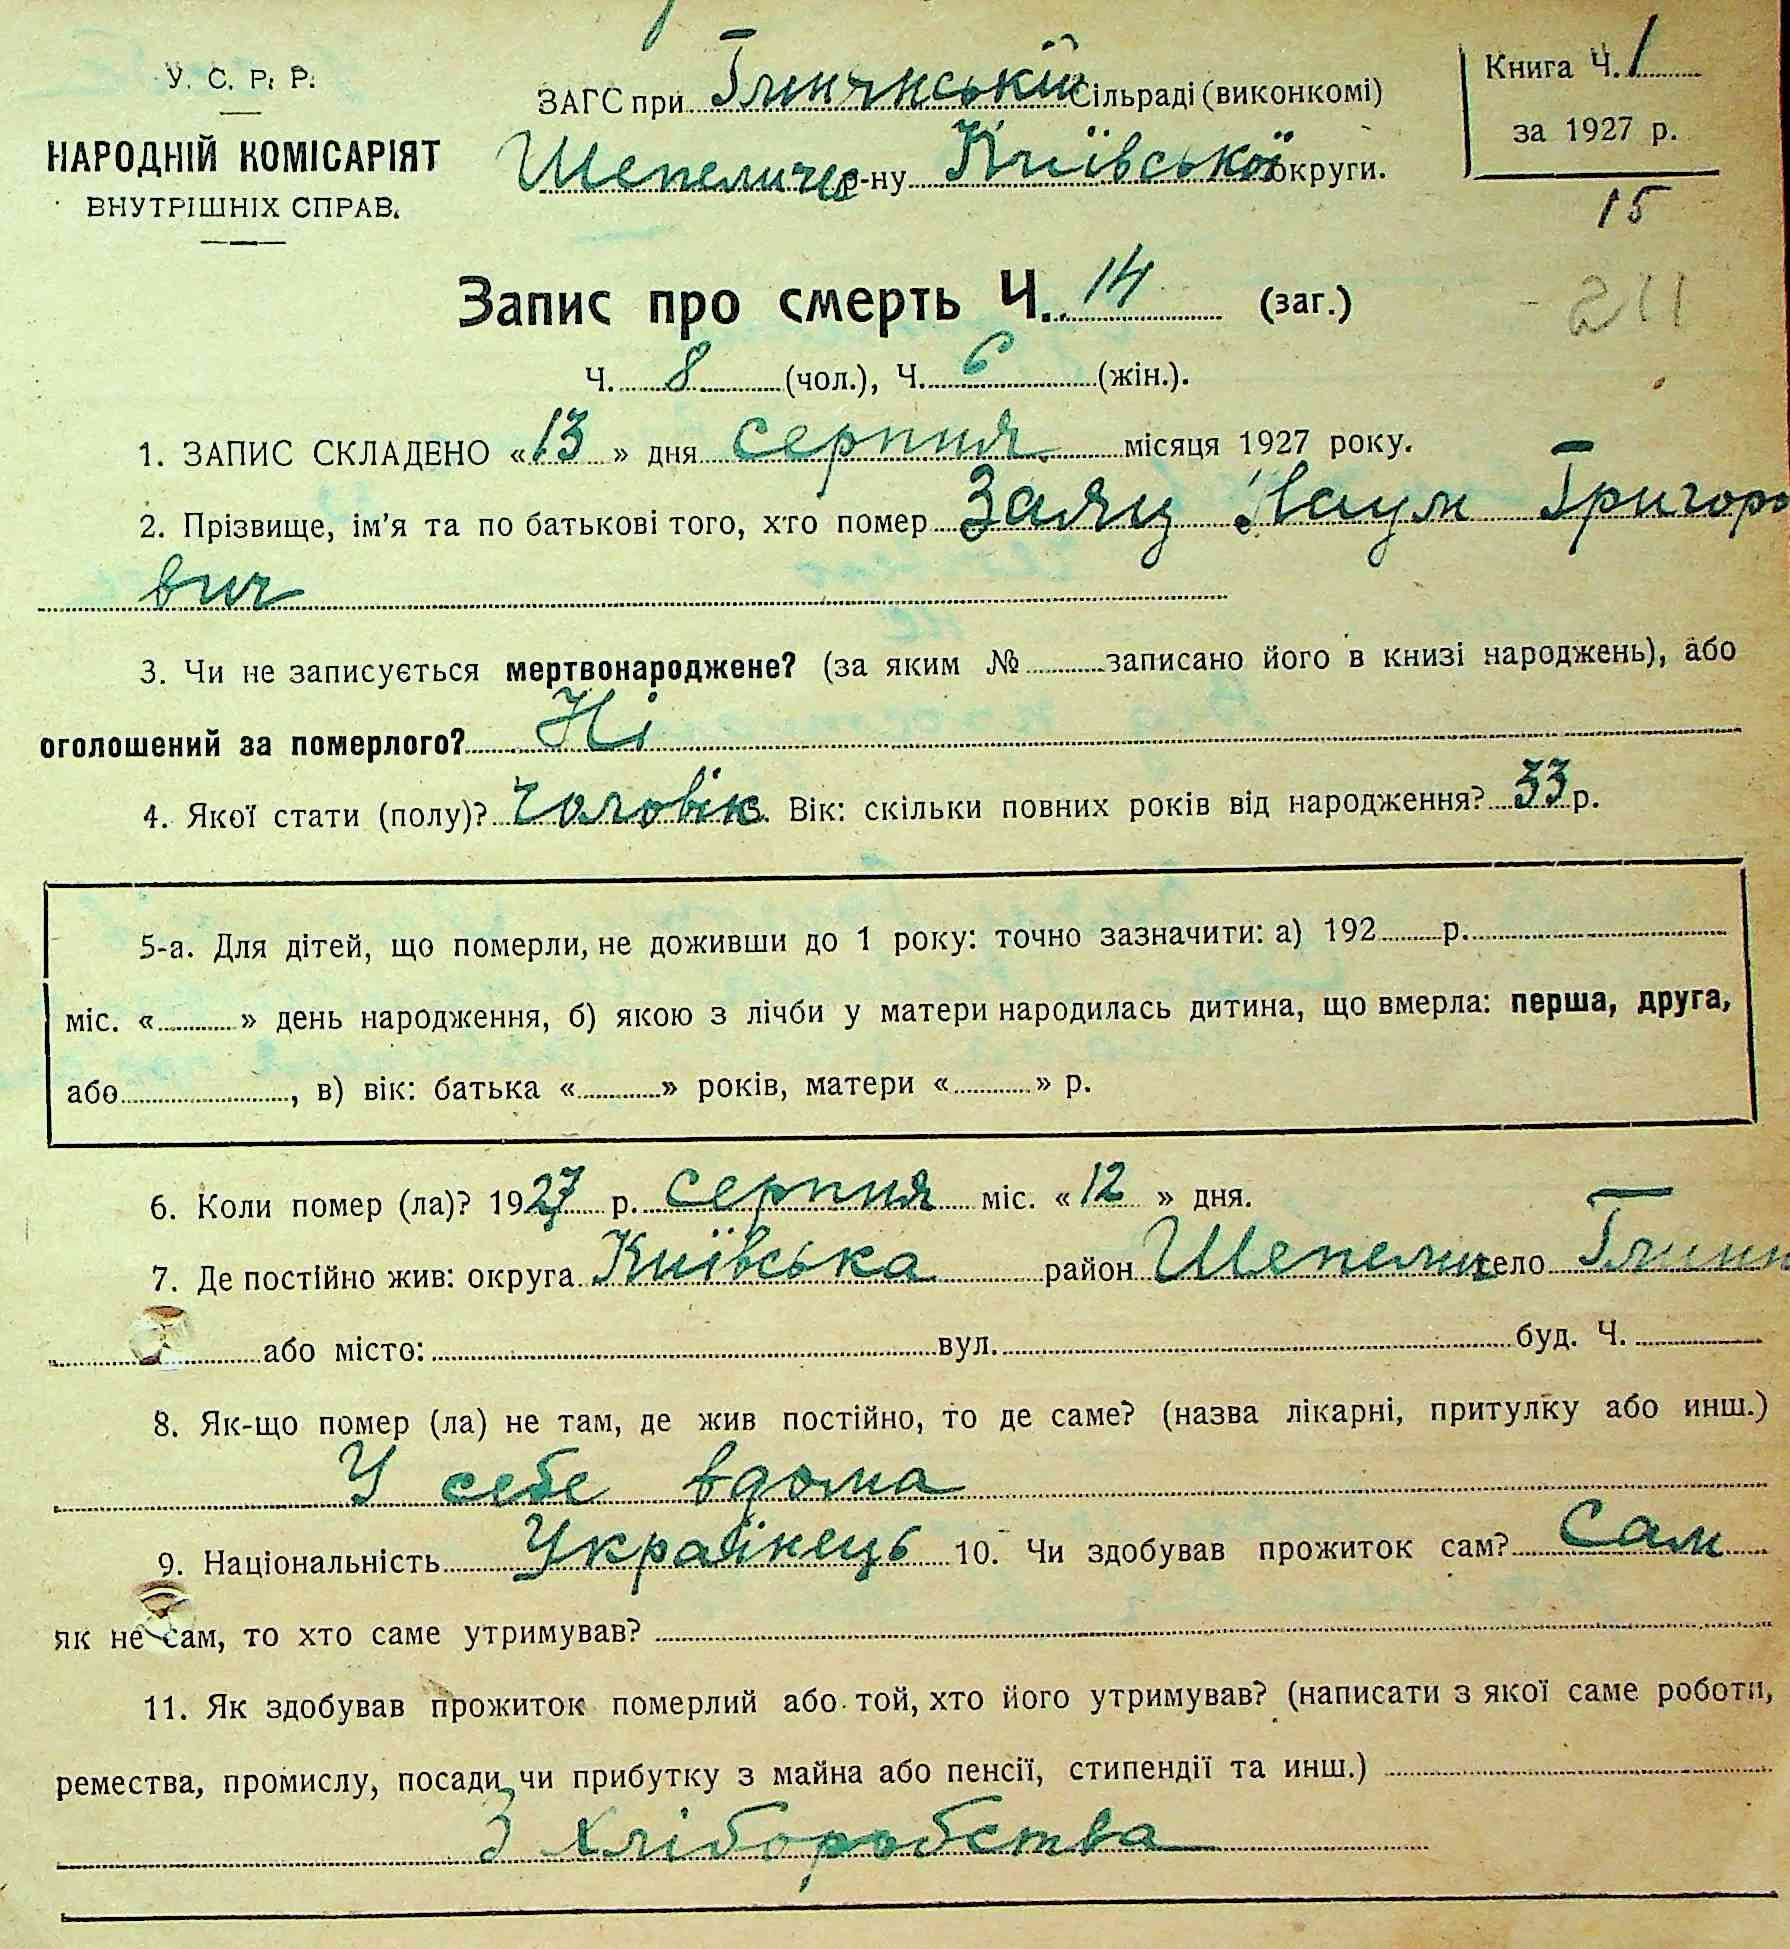 У. С. Р. Р.
НАРОДНІЙ КОМІСАРІЯТ
ВНУТРІШНІХ СПРАВ.
ЗАГС при Глинянській Сільраді (виконкомі)
Шепеличе р-ну Київської округи.
Книга Ч. 1
за 1927 р.
15
211
Запис про смерть Ч. 14 (заг.)
Ч. 8 (чол.), Ч. 6 (жін.).
1. ЗАПИС СКЛАДЕНО « 13 » дня серпня місяця 1927 року.
2. Прізвище, ім'я та по батькові того, хто помер Заяц Наум Григоро
вич
3. Чи не записується мертвонароджене? (за яким № записано його в книзі народжень), або
оголошений за померлого? Ні
4. Якої стати (полу)? Чоловік. Вік: скільки повних років від народження? 33 р.
5-а. Для дітей, що померли, не доживши до 1 року: точно зазначити: а) 192 р.
міс. « » день народження, б) якою з лічби у матери народилась дитина, що вмерла: перша, друга,
або , в) вік: батька « » років, матери « » р.
6. Коли помер (ла)? 1927 р. серпня міс. « 12 » дня.
7. Де постійно жив: округа Київська район Шепелич село Глинк
або місто: вул. буд. Ч.
8. Як-що помер (ла) не там, де жив постійно, то де саме? (назва лікарні, притулку або инш.)
У себе вдома
9. Національність Українець 10. Чи здобував прожиток сам? Сам
як не сам, то хто саме утримував?
11. Як здобував прожиток померлий або той, хто його утримував? (написати з якої саме роботи,
ремества, промислу, посади, чи прибутку з майна або пенсії, стипендії та инш.)
З хліборобства